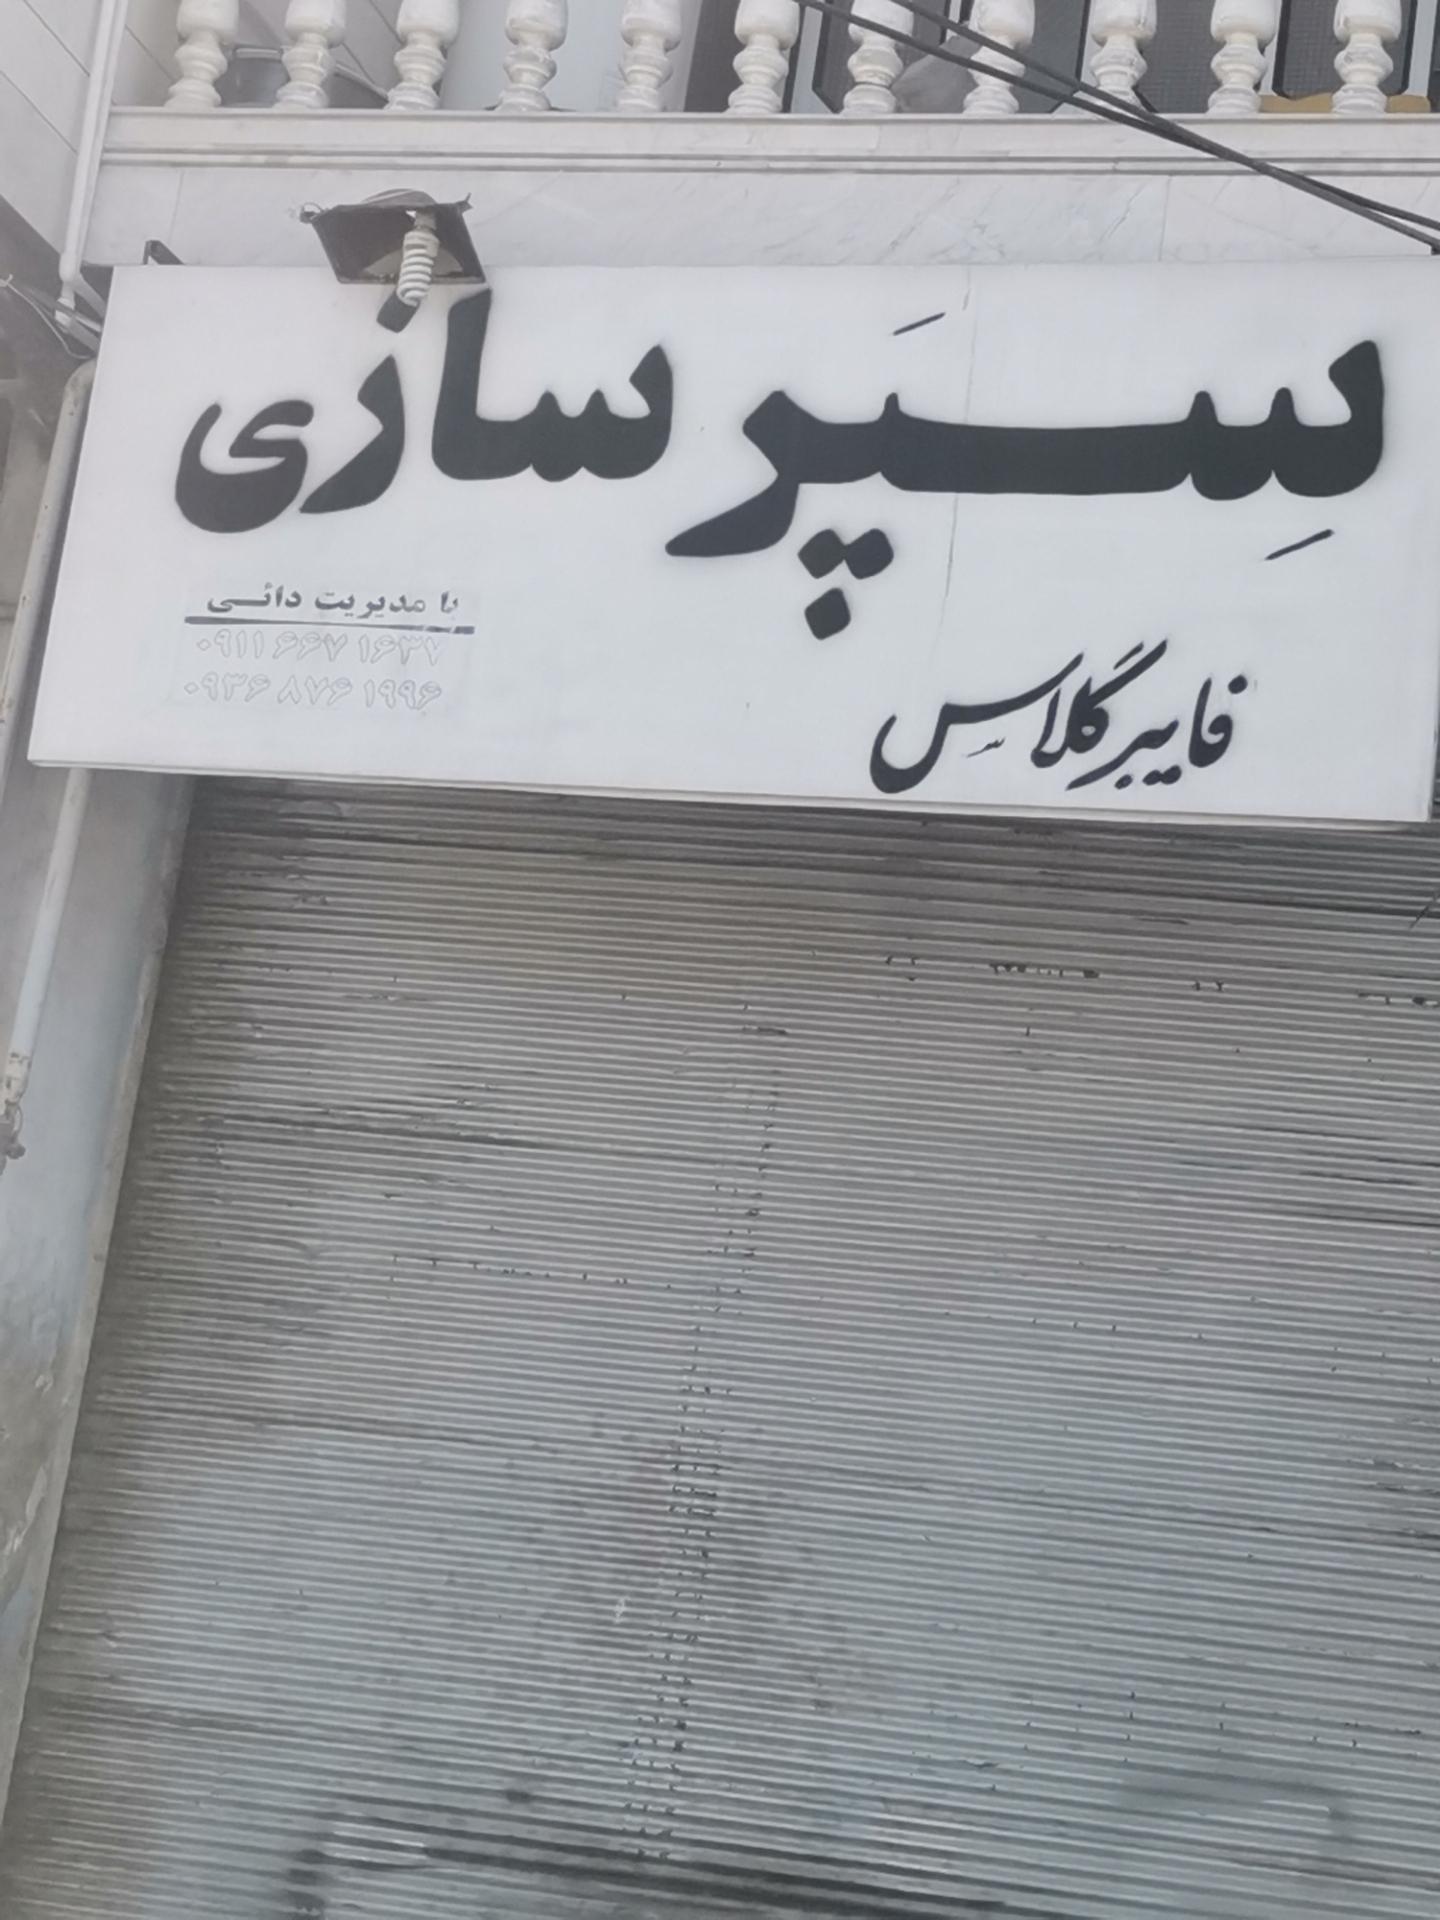 سِپَر سازی
فایبرگلاس
با مدیریت دائی
۰۹۱۱ ۶۶۷ ۱۶۳۷
۰۹۳۶ ۸۷۶ ۱۹۹۶